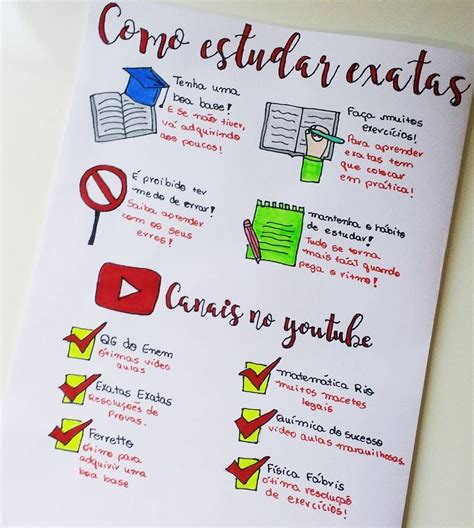 Como estudar exatas
Tenha uma
boa base!
E se não tiver,
vá adquirindo
aos poucos!
Faça muitos
exercícios!
Para aprender
exatas tem
que colocar
em prática!
É proibido ter
medo de errar!
Saiba aprender
com os seus
erros!
mantenha o hábito
de estudar!
Tudo se torna
mais fácil quando
pega o ritmo!
Canais no youtube
QG do Enem
ótimas vídeo
aulas
Exatas Exatas
Resoluções de
Provas.
Ferretto
ótimo para
adquirir uma
boa base
matemática Rio
muitos macetes
legais
Química do sucesso
vídeo aulas maravilhosas.
Física Fábris
ótima resolução
de exercícios!